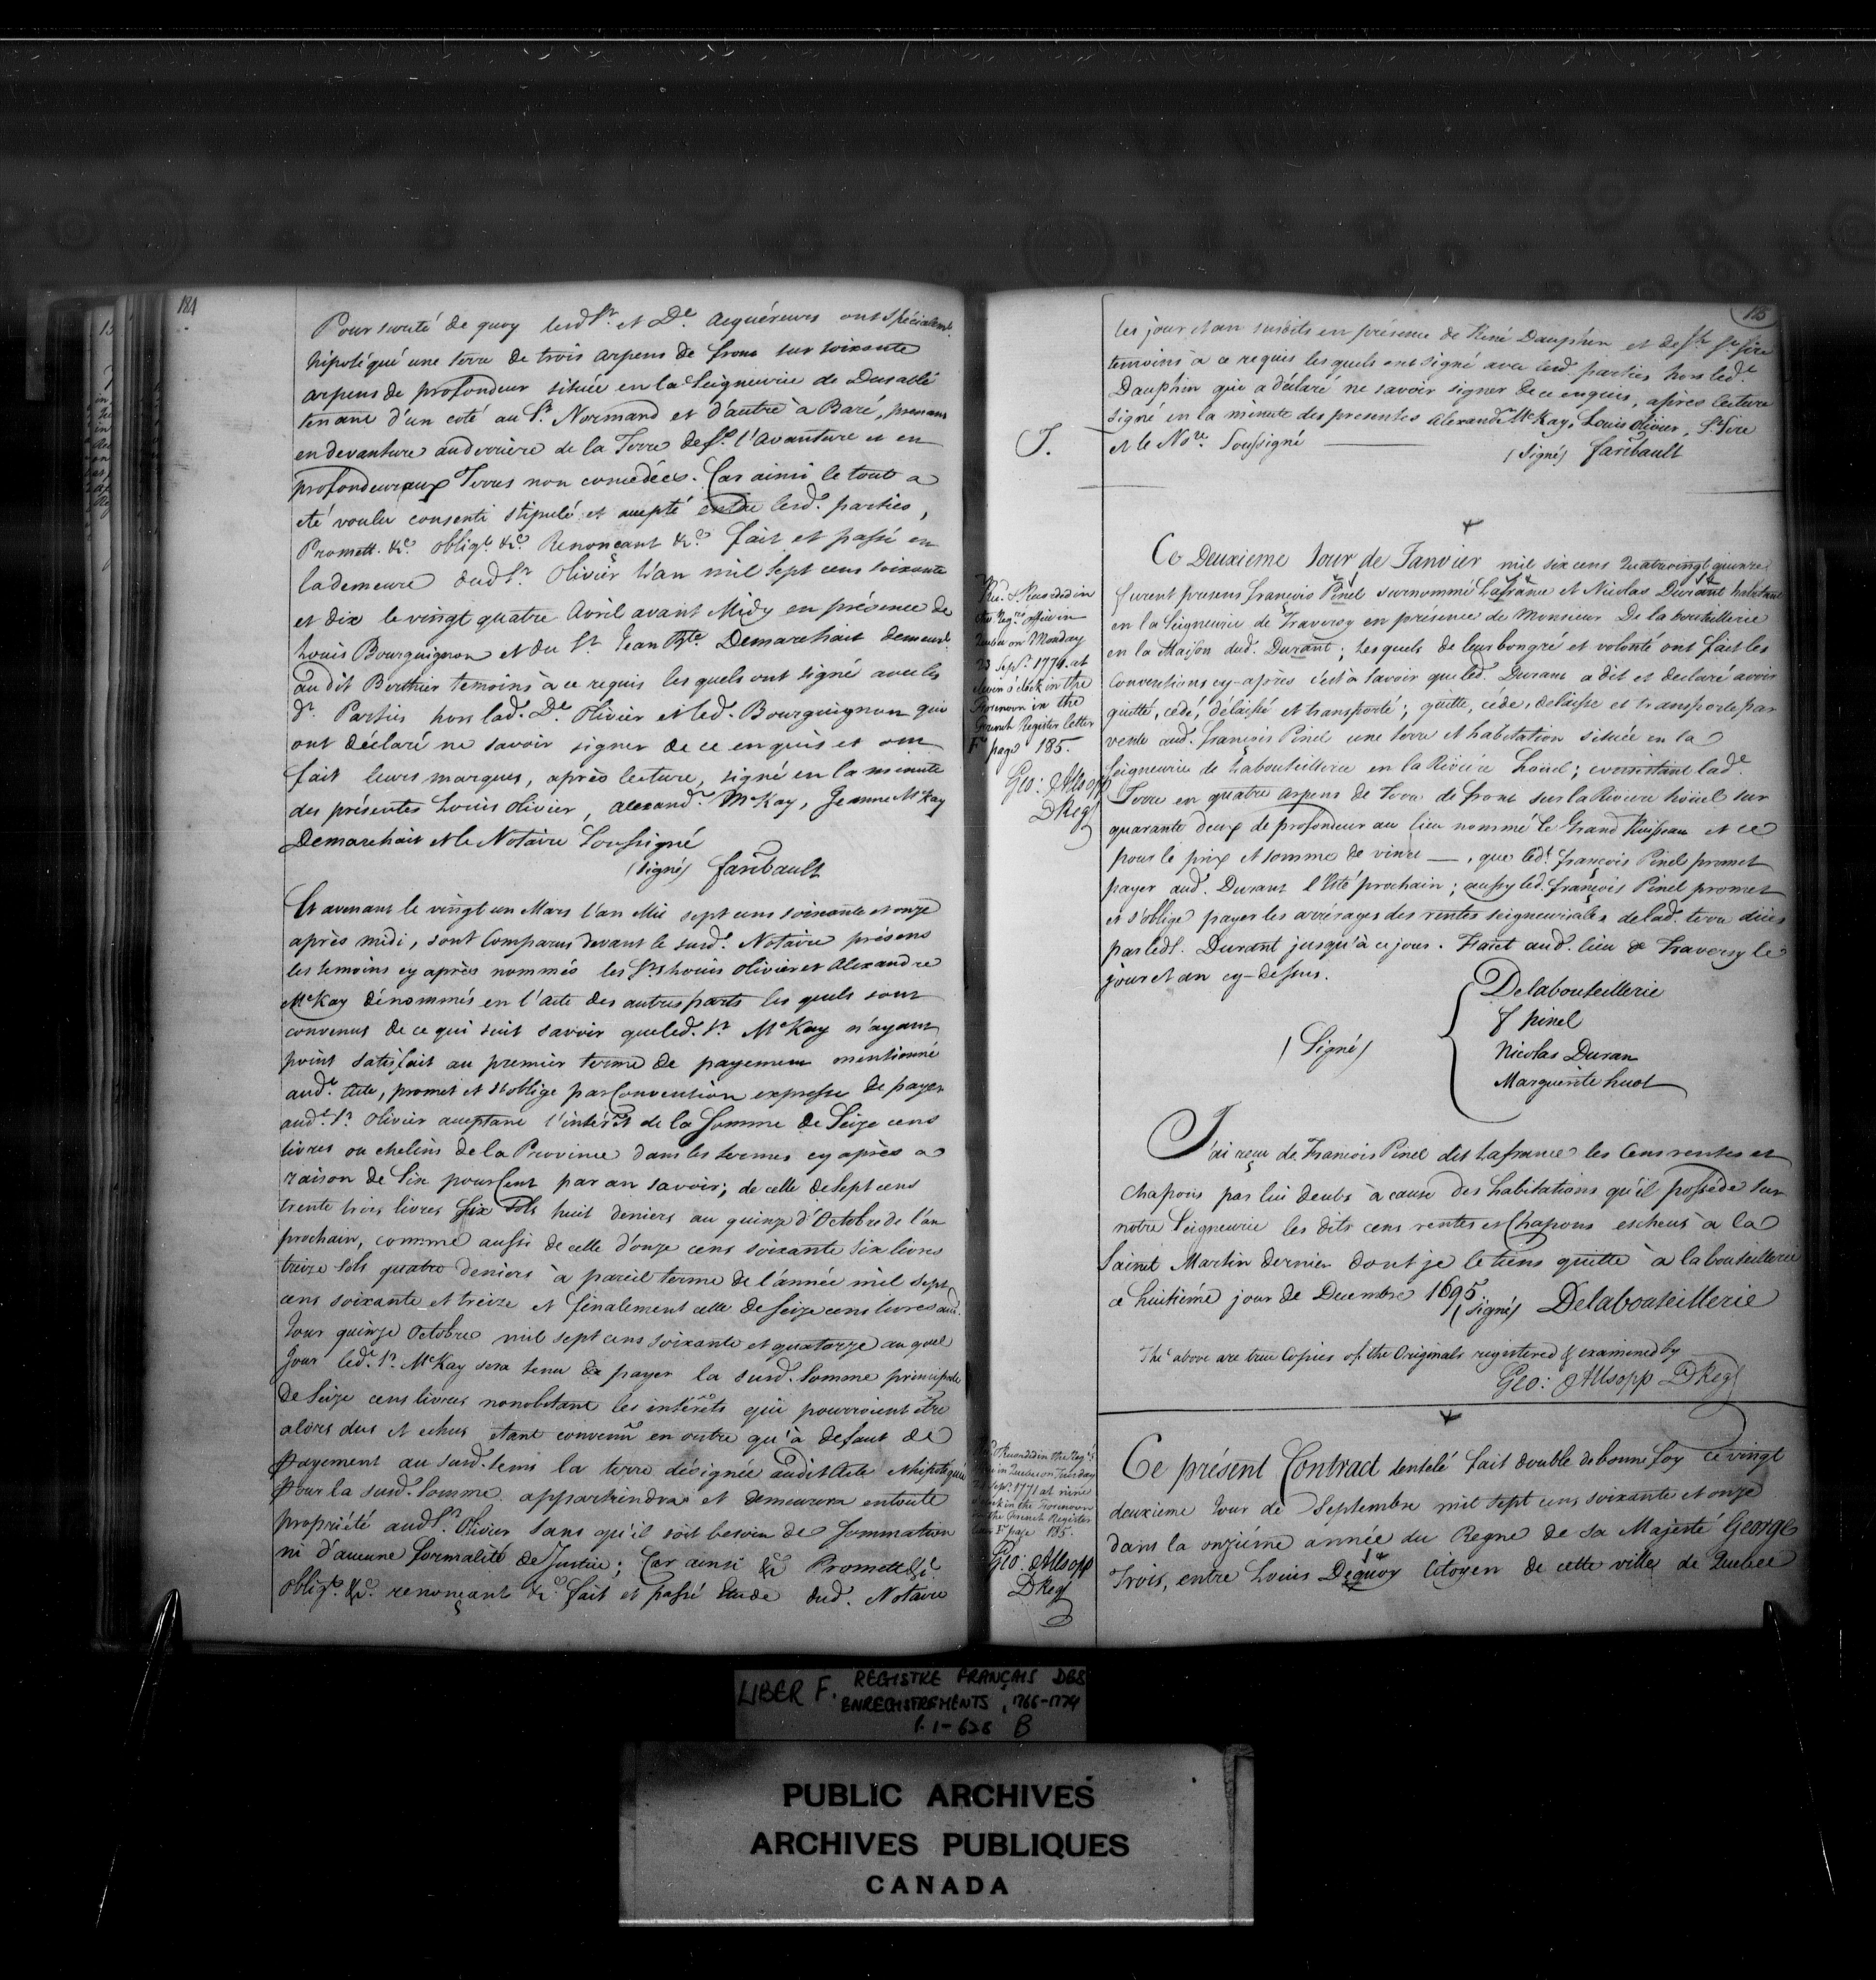 184
Pour sureté de quoy lesd. Sr. et De. Acquéreurs ont spécialemt.
hipotéqué une terre de trois arpens de front sur soixante
arpens de profondeur située en la Seigneurie de Dusablé
tenant d'un coté au Sr. Normand et d'autre à Baré, prenant
en devanture auderrière de la Terre de l'Avanture et en
profondeur aux Terres non concédées. Car ainsi le tout a
eté voulu consenti stipulé et accepté entre lesd. parties,
Promett. &c. obligt. &c. Renonçant &c. fait et passé en
la demeure dud. Sr. Olivier L'an mil sept cens soixante
et dix le vingt quatre Avril avant Midy en présence de
Louis Bourguignon et du Sr. Jean Bte. Demarchait demeurt.
au dit Berthier temoins à ce requis les quels ont signé avec les
dt. Parties hors lad. De. Olivier et led. Bourguignon qui
ont déclaré ne savoir signer de ce enquis et ont
fait leurs marques, après lecture, signé en la minute
des présentes Louis Olivier, alexandr. McKay, Jeanne McKay
Demarchait et le Notaire Soussigné
(signé) faribault
Et avenant le vingt un Mars L'an Mil sept cens soixante et onze
après midi, sont Comparus devant le susd. Notaire présens
les temoins cy après nommés les Srs. Louis Olivier et Alexandre
McKay dénommés en l'acte des autres parts les quels sont
convenus de ce qui suit savoir que led. Sr. McKay n'ayant
point satisfait au premier terme de payement mentionné
aud. Acte, promet et s'oblige par Convention expresse de payer
aud. Sr. Olivier acceptant l'intérêt de la Somme de Seize cens
livres ou chelins de la Province dans les termes cy après a
raison de Six pour Cent par an savoir; de celle de sept cens
trente trois livres Six Sols huit deniers au quinze d'Octobre de l'an
prochain, comme aussi de celle d'onze cens soixante six livres
treize sols quatre deniers à pareil terme de l'année mil sept
cens soixante et treize et finalement celle de Seize cens livres aud.
Jour quinze Octobre mil sept cens soixante et quatorze au quel
Jour led. Sr. McKay sera tenu de payer la susd. Somme principale
de Seize cens livres nonobstant les intérêts qui pourroient être
alors dus et echus étant convenu en outre qu'à defaut de
payement au susd. tems la terre désignée audit Acte et hipotéquée
pour la susd. Somme appartiendra et demeurera en toute
propriété aud. Sr. Olivier sans qu'il soit besoin de Sommation
ni d'aucune formalité de Justice; Car ainsi &c Promett. &c.
obligt. &c. renonçant &c. fait et passé Etude dud. Notaire
185
les jour et an susdits en présence de René Dauphin et de
temoins à ce requis les quels ont signé avec lesd. parties hors led.
Dauphin qui a déclaré ne savoir signer de ce enquis, après lecture
signé en la minute des presentes Alexandr. McKay, Louis Olivier,
et le Nore. Soussigné
(signé) faribault
J.
Ce Deuxieme Jour de Janvier mil six cens quatrevingt quinze
furent presens françois Pinel surnommé Lafrance et Nicolas Durant habitant
en la Seigneurie de Traversy en présence de Monsieur De la bouteillerie
en la Maison dud. Durant; Lesquels de leur bon gré et volonté ont fait les
Conventions cy-après c'est à savoir que led. Durant a dit et declaré avoir
quitté, cédé, délaissé et transporté; quitte, céde, delaisse et transporte par
vente aud. françois Pinel une terre et habitation située en la
Seigneurie de Labouteillerie en la Riviere Houel; consistant lad.
Terre en quatre arpens de Terre de front sur la Riviere houel sur
quarante deux de profondeur au lieu nommé le Grand Ruisseau et ce
pour le prix et somme de vincre —, que led. françois Pinel promet
payer aud. Durant l'Eté prochain; aussy led. françois Pinel promet
et s'oblige payer les arrérages des rentes seigneuriales de lad. terre dües
par led. Durant jusqu'à ce jour. Faict aud. lieu de Traversy le
jour et an cy-dessus.
(Signé)
Delabouteillerie
f pinel
Nicolas Duran
Marguerite huot
Rec. & Recorded in
the Regrs. office in
Quebec on Monday
23 Sept. 1771. at
eleven o'clock in the
Forenoon in the
French Register letter
F page 185.
Geo: Allsopp
DReg
J'ai reçu de Francois Pinel dit Lafrance les Cens rentes et
chapons par lui deubs à cause des habitations qu'il posséde sur
notre Seigneurie les dits cens rentes et Chapons escheus à la
Sainct Martin dernier dont je le tiens quitte à la bouteillerie
ce huitième jour de Decembre 1695
(signé) Delabouteillerie
The above are true Copies of the Originals registered & examined by
Geo: Allsopp DReg
Ce présent Contract dentelé fait double de bonne foy ce vingt
deuxieme Jour de Septembre mil sept cens soixante et onze
dans la onzième année du Regne de Sa Majesté George
Trois, entre Louis Dequoy Citoyen de cette ville de Quebec
Recorded in the Regrs.
in Quebec on Tuesday
Sepr. 1771 at nine
o'clock in the Forenoon
in the French Register
letter F page 185.
Geo: Allsopp
DReg
LIBER F. REGISTRE FRANÇAIS DES
ENREGISTREMENTS, 1766-1774
P. 1-626 B
PUBLIC ARCHIVES
ARCHIVES PUBLIQUES
CANADA